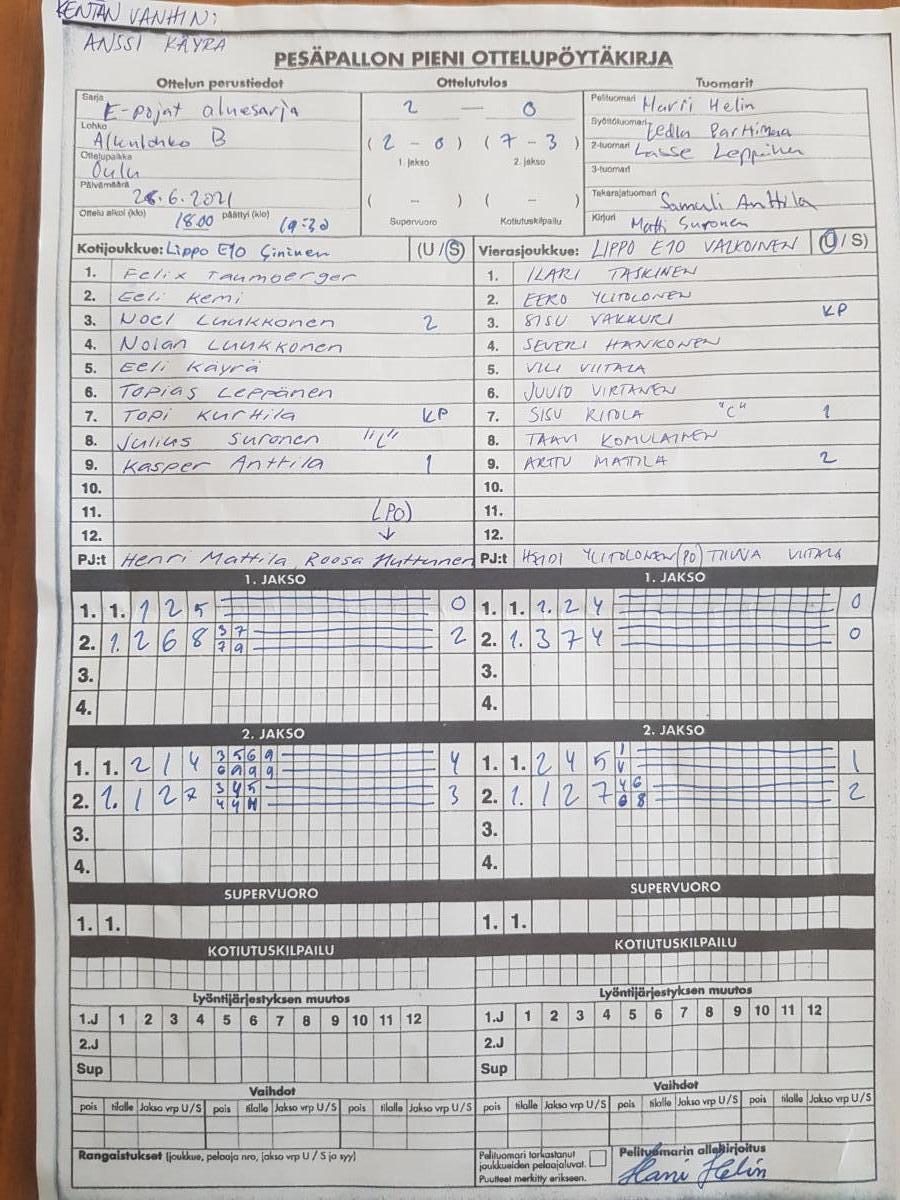 KENTÄN VANHIN:
ANSSI KÄYRÄ
PESÄPALLON PIENI OTTELUPÖYTÄKIRJA
Ottelun perustiedot Ottelutulos Tuomarit
Sarja E-pojat aluesarja
Lohko Alkulohko B
Ottelupaikka Oulu
Päivämäärä 28.6.2021
Ottelu alkoi (klo) 18.00 päättyi (klo) 19:30
2 — 0
(2 - 0) (7 - 3)
1. jakso 2. jakso
( - ) ( - )
Supervuoro Kotiutuskilpailu
Pelituomari Harri Helin
Syöttötuomari Partimaa
2-tuomari Lasse Leppänen
3-tuomari
Takarajatuomari Samuli Anttila
Kirjuri Matti Suronen
Kotijoukkue: Lippo E10 Sininen (U/S)
1. Felix Taumberger
2. Eeli Kemi
3. Noel Luukkonen 2
4. Nolan Luukkonen
5. Eeli Käyrä
6. Topias Leppänen
7. Topi Kurttila KP
8. Julius Suronen "C"
9. Kasper Anttila 1
10.
11. (PO)
12. ↓
PJ:t Henri Mattila, Roosa Huttunen
Vierasjoukkue: LIPPO E10 VALKOINEN (U/S)
1. ILARI TASKINEN
2. EERO YLITOLONEN
3. SISU VAKKURI KP
4. SEVERI HANKONEN
5. VILI VIITALA
6. JUUSO VIRTANEN
7. SISU RITOLA "C" 1
8. TAAVI KOMULAINEN
9. ARTTU MATTILA 2
10.
11.
12.
PJ:t HEIDI YLITOLONEN (PO) TIINA VIITALA
1. JAKSO 1. JAKSO
1. 1. 1 2 5 0 1. 1. 1. 2 4 0
2. 1. 2 6 8 3 7 2 2. 1. 3 7 4 0
7 9
3. 3.
4. 4.
2. JAKSO 2. JAKSO
1. 1. 2 1 4 3 5 6 9 4 1. 1. 2 4 5 1 1
6 9 9 9
2. 1. 1 2 7 3 4 5 3 2. 1. 1 2 7 4 6 2
4 4 6 8
3. 3.
4. 4.
SUPERVUORO SUPERVUORO
1. 1. 1. 1.
KOTIUTUSKILPAILU KOTIUTUSKILPAILU
Lyöntijärjestyksen muutos Lyöntijärjestyksen muutos
1.J 1 2 3 4 5 6 7 8 9 10 11 12 1.J 1 2 3 4 5 6 7 8 9 10 11 12
2.J 2.J
Sup Sup
Vaihdot Vaihdot
pois tilalle Jakso vrp U/S pois tilalle Jakso vrp U/S pois tilalle Jakso vrp U/S pois tilalle Jakso vrp U/S pois tilalle Jakso vrp U/S pois tilalle Jakso vrp U/S
Rangaistukset (joukkue, pelaaja nro, jakso vrp U / S ja syy)
Pelituomari tarkastanut
joukkueiden pelaajaluvat.
Puutteet merkitty erikseen.
Pelituomarin allekirjoitus
Harri Helin